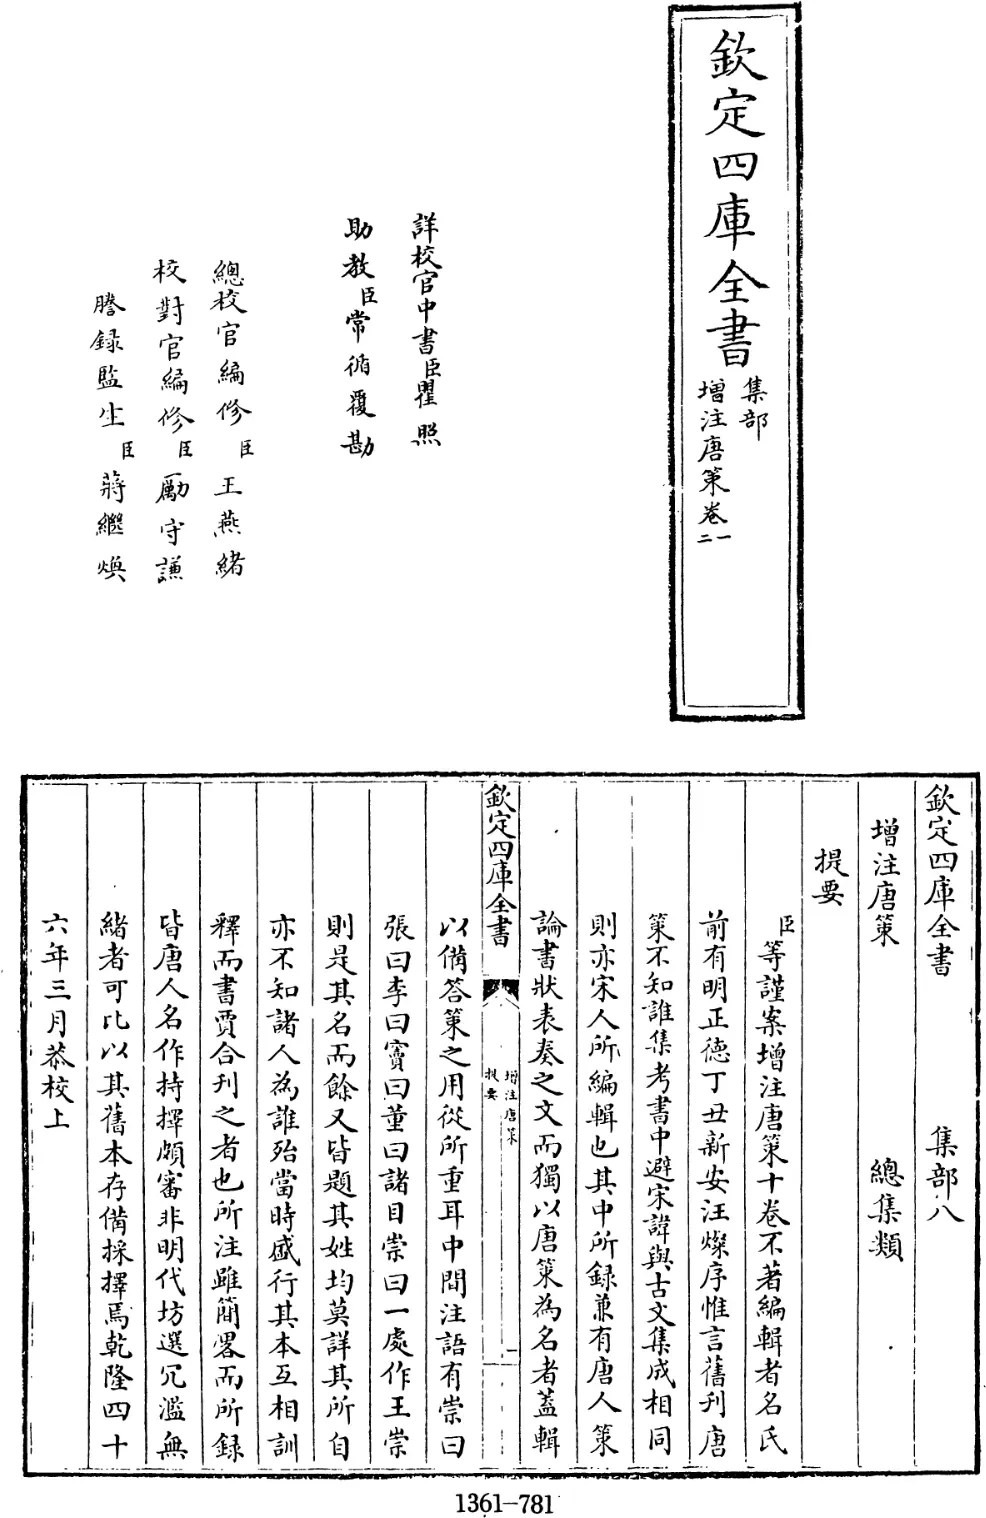 欽定四庫全書
集部
增注唐策卷一
二
詳校官中書臣瞿照
助教臣常循覆勘
總校官編修臣王燕緒
校對官編修臣勵守謙
謄錄監生臣蔣繼煥
欽定四庫全書 集部八
增注唐策 總集類
提要
臣等謹案增注唐策十卷不著編輯者名氏
前有明正德丁丑新安汪燦序惟言舊刋唐
策不知誰集考書中避宋諱與古文集成相同
則亦宋人所編輯也其中所録兼有唐人策
論書狀表奏之文而獨以唐策為名者蓋輯
欽定四庫全書
增注唐策
提要
一
以備答策之用從所重耳中間注語有崇曰
張曰李曰竇曰董曰諸目崇曰一處作王崇
則是其名而餘又皆題其姓均莫詳其所自
亦不知諸人為誰殆當時盛行其本互相訓
釋而書賈合刋之者也所注雖簡畧而所録
皆唐人名作持擇頗審非明代坊選冗濫無
緒者可比以其舊本存備採擇焉乾隆四十
六年三月恭校上
1361-781